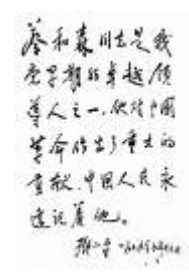 蔡和森同志是我
党早期的卓越领
导人之一，他对中国
革命作出了重大的
贡献，中国人民永
远记着他。
邓小平